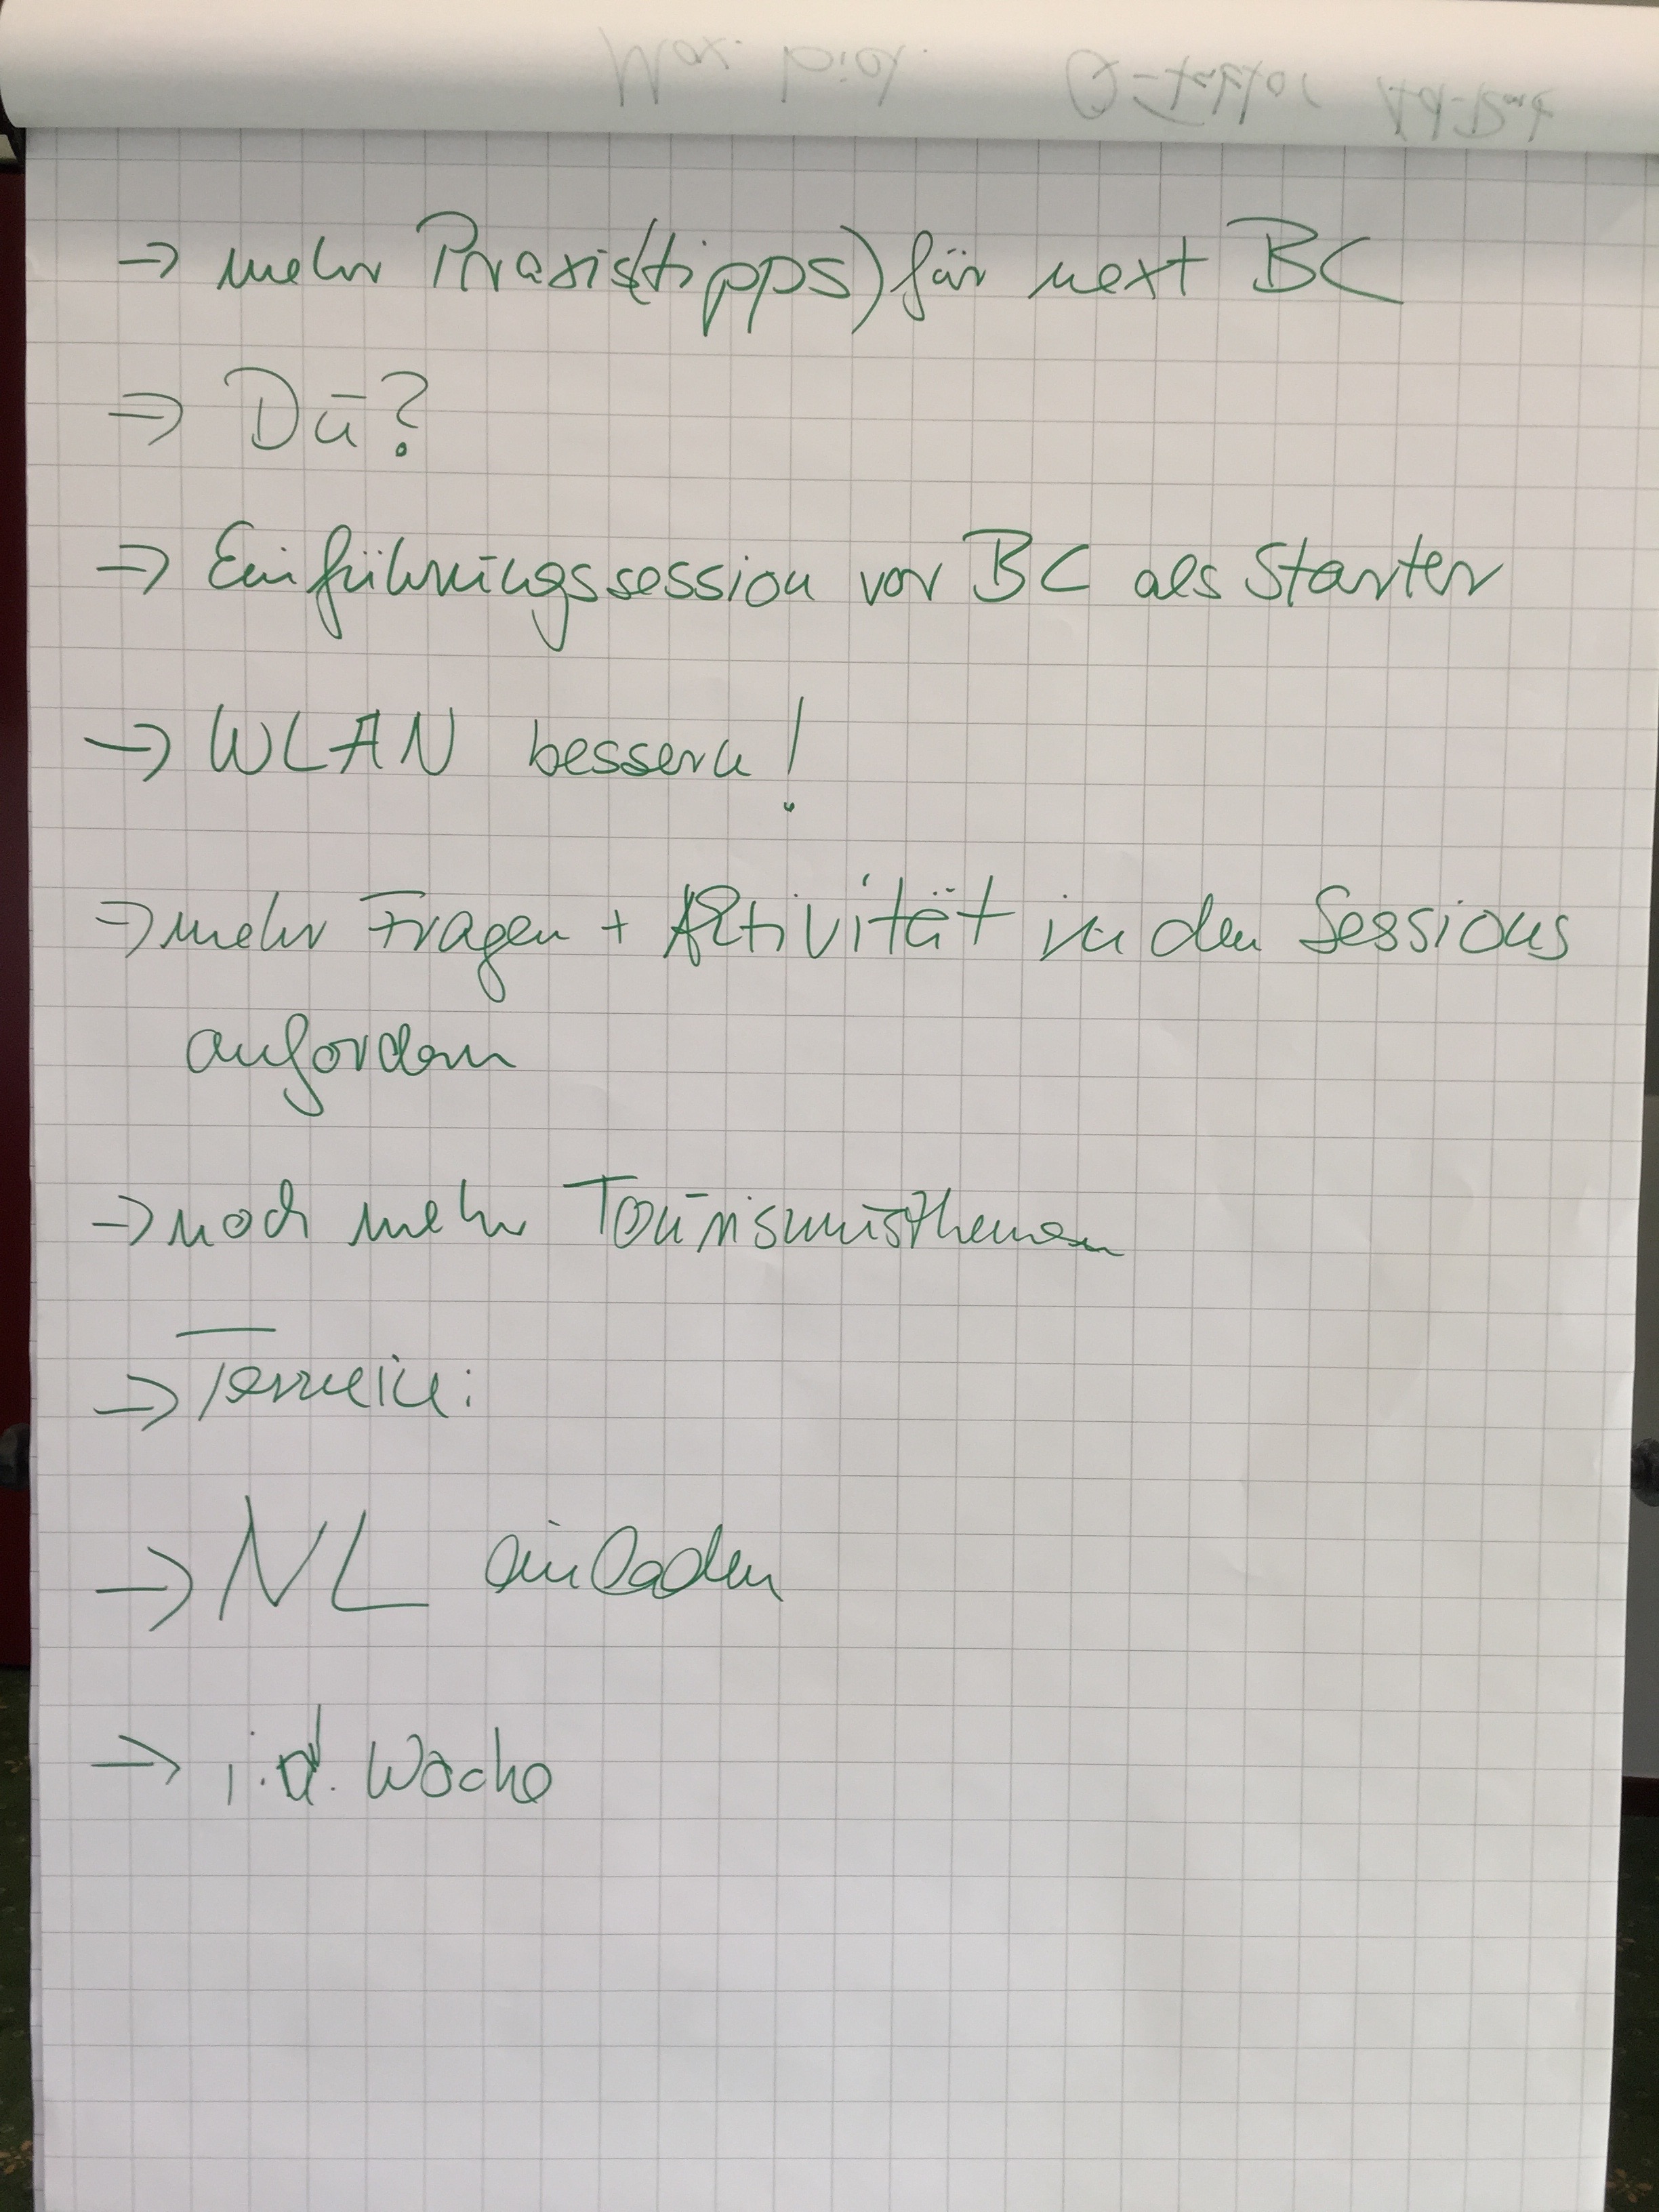 → mehr Praxis(tipps) für next BC
⇒ Du?
⇒ Einführungssession vor BC als Starter
→ WLAN bessern!
⇒ mehr Fragen + Aktivität in den Sessions
aufordern
→ noch mehr Tourismusthemen
⇒ Termin:
→ NL einladen
→ i.d. Woche